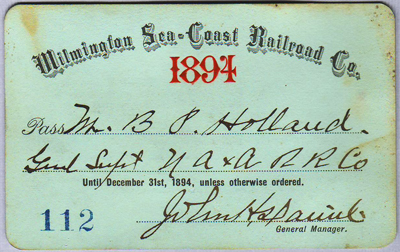 Wilmington Sea-Coast Railroad Co.
1894
Pass Mr. B P. Holland.
Genl Supt N A & A R R Co
Until December 31st, 1894, unless otherwise ordered.
112
John H
General Manager.